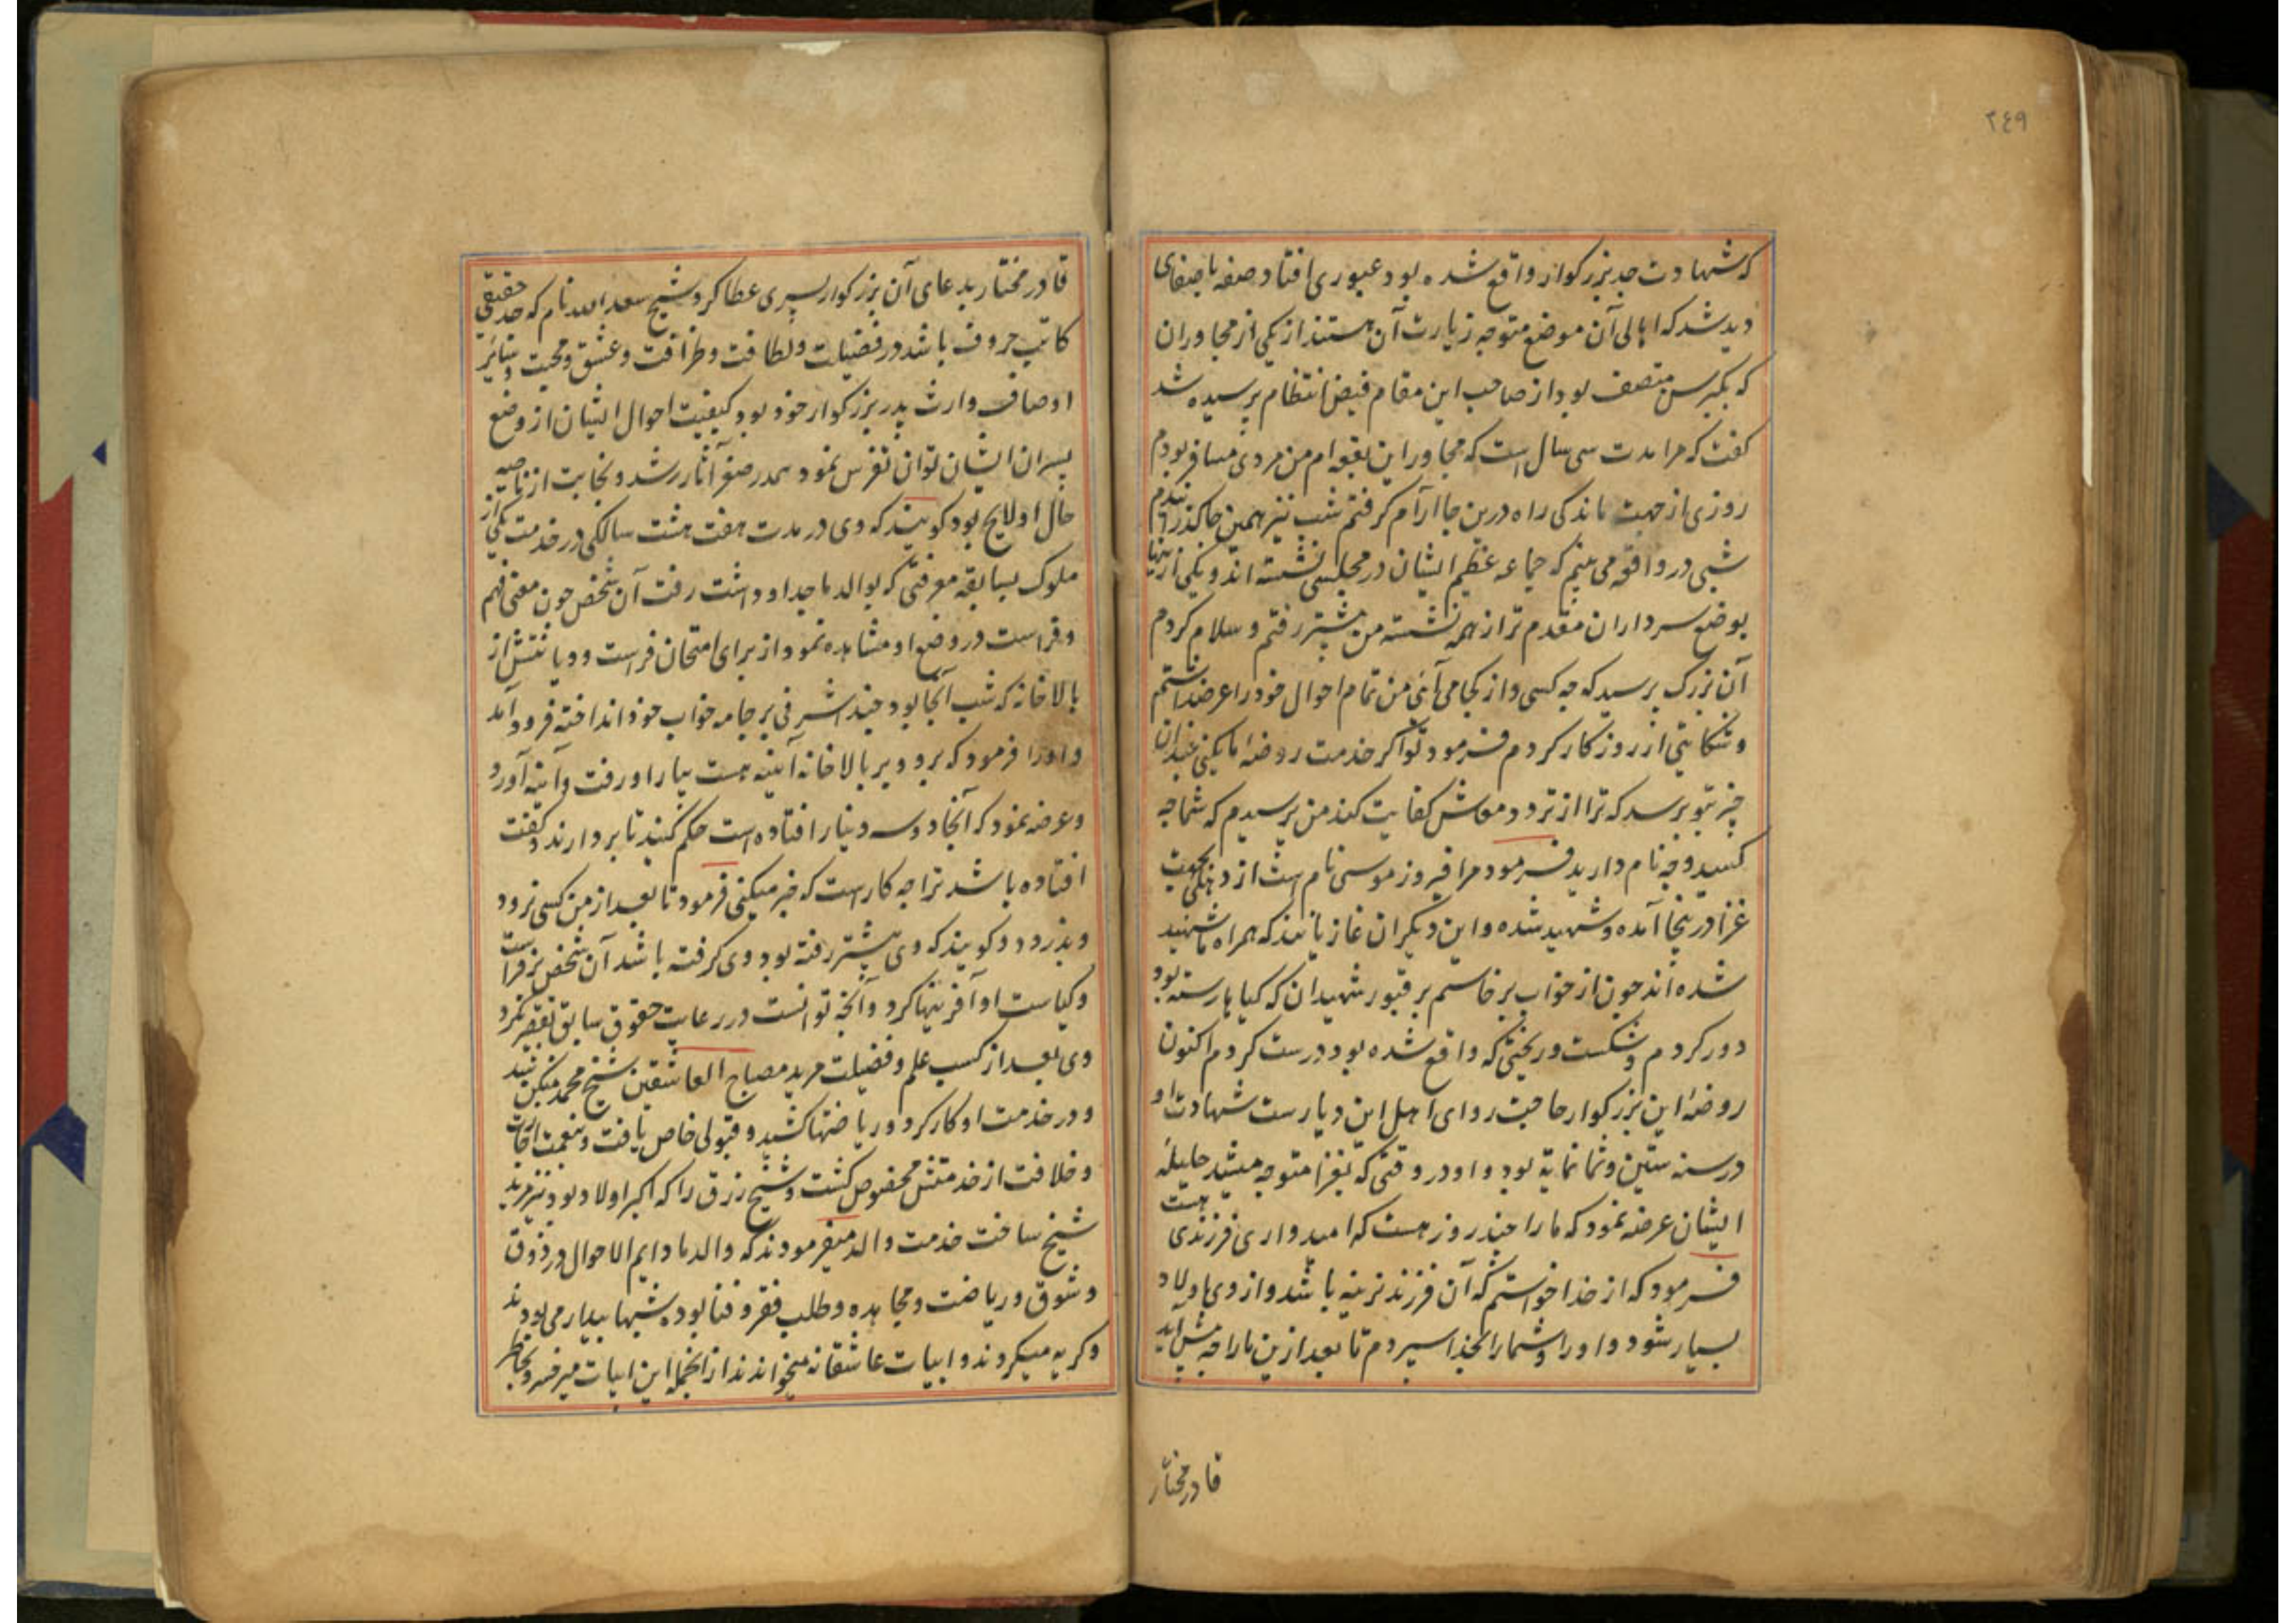 ٢٤٩
که شهادت جد بزرکوار واقع شده بود عبوری افتاد صفه باصفای
دید شد که اهالی آن موضع متوجه زیارت آن هستند از یکی از مجاوران
که بکبر سن متصف بود از صاحب این مقام فیض انتظام پرسیده شد
کفت که مرا مدت سی سال است که مجاور این بقعه ام من مردی مسافر بودم
روزی از جهت ماندکی راه درین جا آرام کرفتم شب نیز همین جا کذرانیدم
شبی در واقعه می بینم که جماعه عظیم الشان در مجلسی نشسته اند و یکی از اینها
بوضع سرداران مقدم تر از همه نشسته من پیشتر رفتم و سلام کردم
آن بزرک پرسید که چه کسی و از کجا می آئی من تمام احوال خود را عرضداشتم
و شکایتی از روزکار کردم فرمود تو اکر خدمت روضهٔ ما بکنی چندان
چیز بتو برسد که ترا از تردد معاش کفایت کند من پرسیدم که شما چه
کسید و چه نام دارید فرمود مرا فیروز موسی نام است از دهلی بجهت
غزا درینجا آمده و شهید شده و این دیکران غازیانند که همراه ما شهید
شده اند چون از خواب برخاستم بر قبور شهیدان که کیاها رسته بود
دور کردم و شکست و ریختی که واقع شده بود درست کردم اکنون
روضهٔ این بزرکوار حاجت روای اهل این دیارست شهادت او
در سنه ستین و ثمانمایة بود و او در وقتی که بغزا متوجه میشد حلیلهٔ
ایشان عرضه نمود که ما را چند روز هست که امیدواری فرزندی هست
فرمود که از خدا خواستم که آن فرزند نرینه باشد و از وی اولاد
بسیار شود و او را و شما را بخدا سپردم تا بعد ازین ما را چه پیش آید
قادر مختار
قادر مختار بدعای آن بزرکوار پسری عطا کرد شیخ سعد الله نام که جد حقیقی
کاتب حروف باشد در فضیلت و لطافت و ظرافت و عشق و محبت و سایر
اوصاف وارث پدر بزرکوار خود بود کیفیت احوال ایشان از وضع
پسران ایشان توان تفرس نمود هم در صغر آثار رشد و نجابت از ناصیه
حال او لایح بود کویند که وی در مدت هفت هشت سالکی در خدمت یکی از
ملوک بسابقه معرفتی که بوالد ماجد او داشت رفت آن شخص چون معنی فهم
و فراست در وضع او مشاهده نمود از برای امتحان فراست و دیانتش از
بالاخانه که شب آنجا بود چند اشرفی بر جامه خواب خود انداخته فرود آمد
و او را فرمود که برو و بر بالاخانه آینه هست بیار او رفت و آینه آورد
و عرضه نمود که آنجا دو سه دینار افتاده است حکم کنید تا بردارند کفت
افتاده باشد ترا چه کارست که خبر میکنی فرمود تا بعد از من کسی نرود
و بدزدد و کویند که وی پیشتر رفته بود وی کرفته باشد آن شخص بر فراست
و کیاست او آفرینها کرد و آنچه توانست در رعایت حقوق سابق تقصیر نکرد
وی بعد از کسب علم و فضیلت مرید مصباح العاشقین شیخ محمد منکن شد
و در خدمت او کار کرد و ریاضتها کشید و قبولی خاص یافت و بنعمت اجازت
و خلافت از خدمتش مخصوص کشت و شیخ رزق را که اکبر اولاد بود نیز مرید
شیخ ساخت خدمت والد میفرمودند که والد ما دایم الاحوال در ذوق
و شوق و ریاضت و مجاهده و طلب فقر و فنا بوده شبها بیدار می بودند
و کریه میکردند و ابیات عاشقانه میخواندند از انجمله این ابیات میرفسرو بخاطر